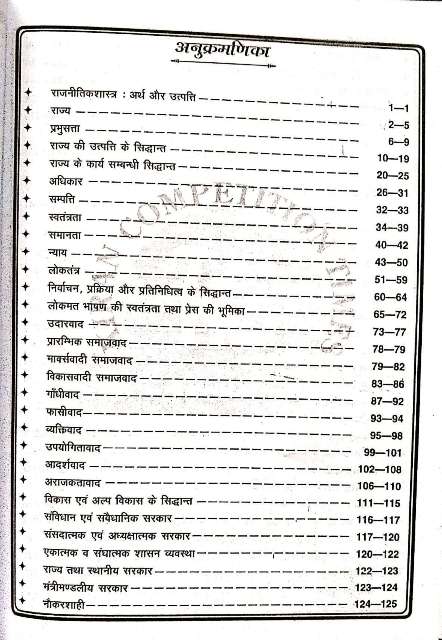 अनुक्रमणिका
राजनीतिकशास्त्र : अर्थ और उत्पत्ति 1—1
राज्य 2—5
प्रभुसत्ता 6—9
राज्य की उत्पत्ति के सिद्धान्त 10—19
राज्य के कार्य सम्बन्धी सिद्धान्त 20—25
अधिकार 26—31
सम्पत्ति 32—33
स्वतंत्रता 34—39
समानता 40—42
न्याय 43—50
लोकतंत्र 51—59
निर्वाचन, प्रक्रिया और प्रतिनिधित्व के सिद्धान्त 60—64
लोकमत भाषण की स्वतंत्रता तथा प्रेस की भूमिका 65—72
उदारवाद 73—77
प्रारम्भिक समाजवाद 78—79
मार्क्सवादी समाजवाद 79—82
विकासवादी समाजवाद 83—86
गाँधीवाद 87—92
फासीवाद 93—94
व्यक्तिवाद 95—98
उपयोगितावाद 99—101
आदर्शवाद 102—108
अराजकतावाद 106—110
विकास एवं अल्प विकास के सिद्धान्त 111—115
संविधान एवं संवैधानिक सरकार 116—117
संसदात्मक एवं अध्यक्षात्मक सरकार 117—120
एकात्मक व संघात्मक शासन व्यवस्था 120—122
राज्य तथा स्थानीय सरकार 122—123
मंत्रीमण्डलीय सरकार 123—124
नौकरशाही 124—125
COMPETITION TIMES